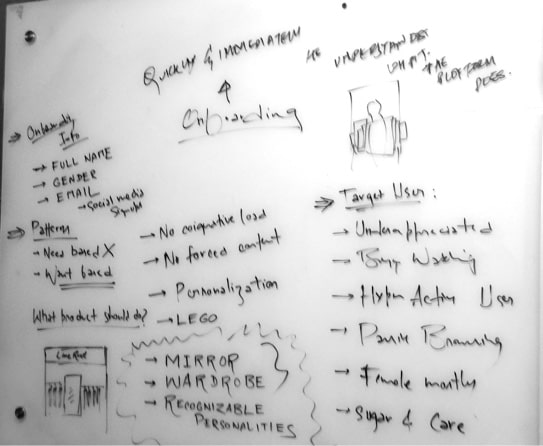 QUICKLY & IMMEDIATELY HE UNDERSTANDS
WHAT THE
PLATFORM
DOES.
Onboarding
⇒ Onboarding
Info
→ FULL NAME
→ GENDER
→ EMAIL
→ Social media
Signup
⇒ Pattern
→ Need based X
→ Want based
→ No cognative load
→ No forced content
→ Personalization
→ LEGO
What product should do?
→ MIRROR
→ WARDROBE
→ RECOGNIZABLE
PERSONALITIES
⇒ Target User:
→ Underappreciated
→ Hyper Active User
→ Female mostly
→ Sugar & Care